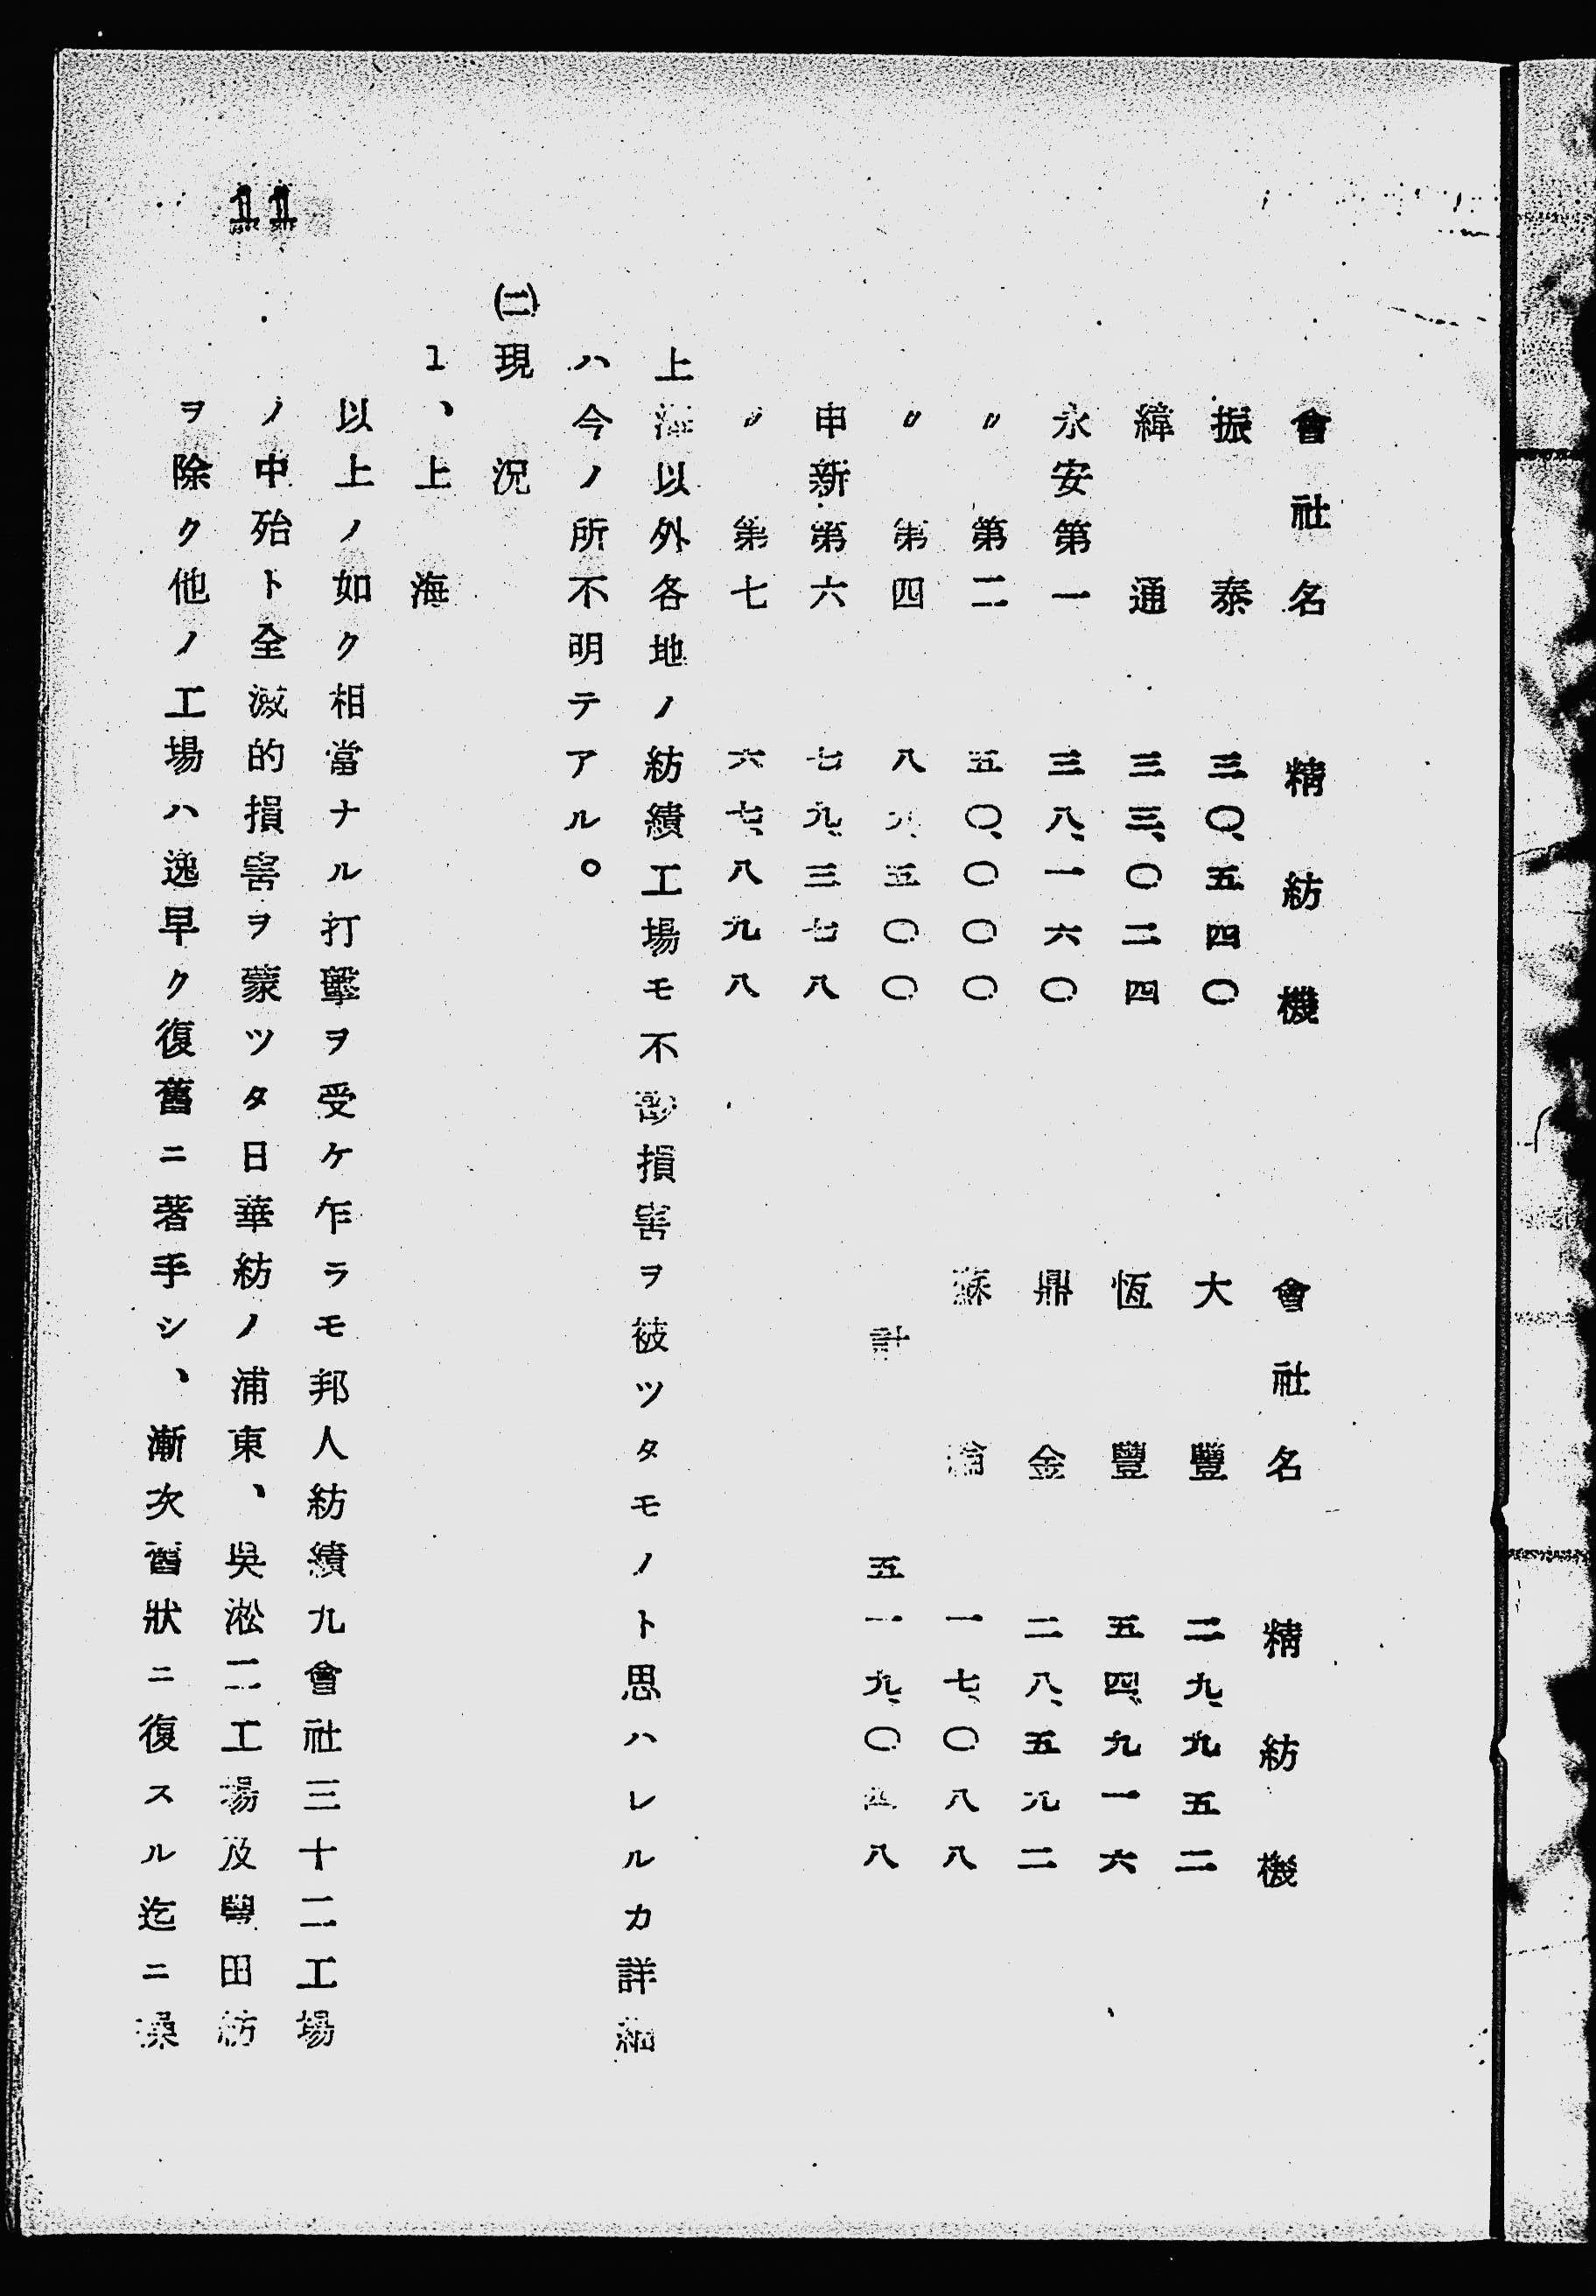 會社名 精紡機 會社名 精紡機
振泰 三〇、五四〇 大豐 二九、九五二
緯通 三三、〇二四 恆豐 五四、九一六
永安第一 三八、一六〇 鼎金 二八、五九二
〃第二 五〇、〇〇〇 蘇 一七、〇八八
〃第四 八九、五〇〇 計 五一九、〇四八
申新第六 七九、三七八
〃第七 六七、八九八
上海以外各地ノ紡績工場モ不尠損害ヲ被ツタモノト思ハレルカ詳細
ハ今ノ所不明テアル。
㈡現況
1、上海
以上ノ如ク相當ナル打擊ヲ受ケ乍ラモ邦人紡績九會社三十二工場
ノ中殆ト全滅的損害ヲ蒙ツタ日華紡ノ浦東、吳淞二工場及豐田紡
ヲ除ク他ノ工場ハ逸早ク復舊ニ著手シ、漸次舊狀ニ復スル迄ニ操
11